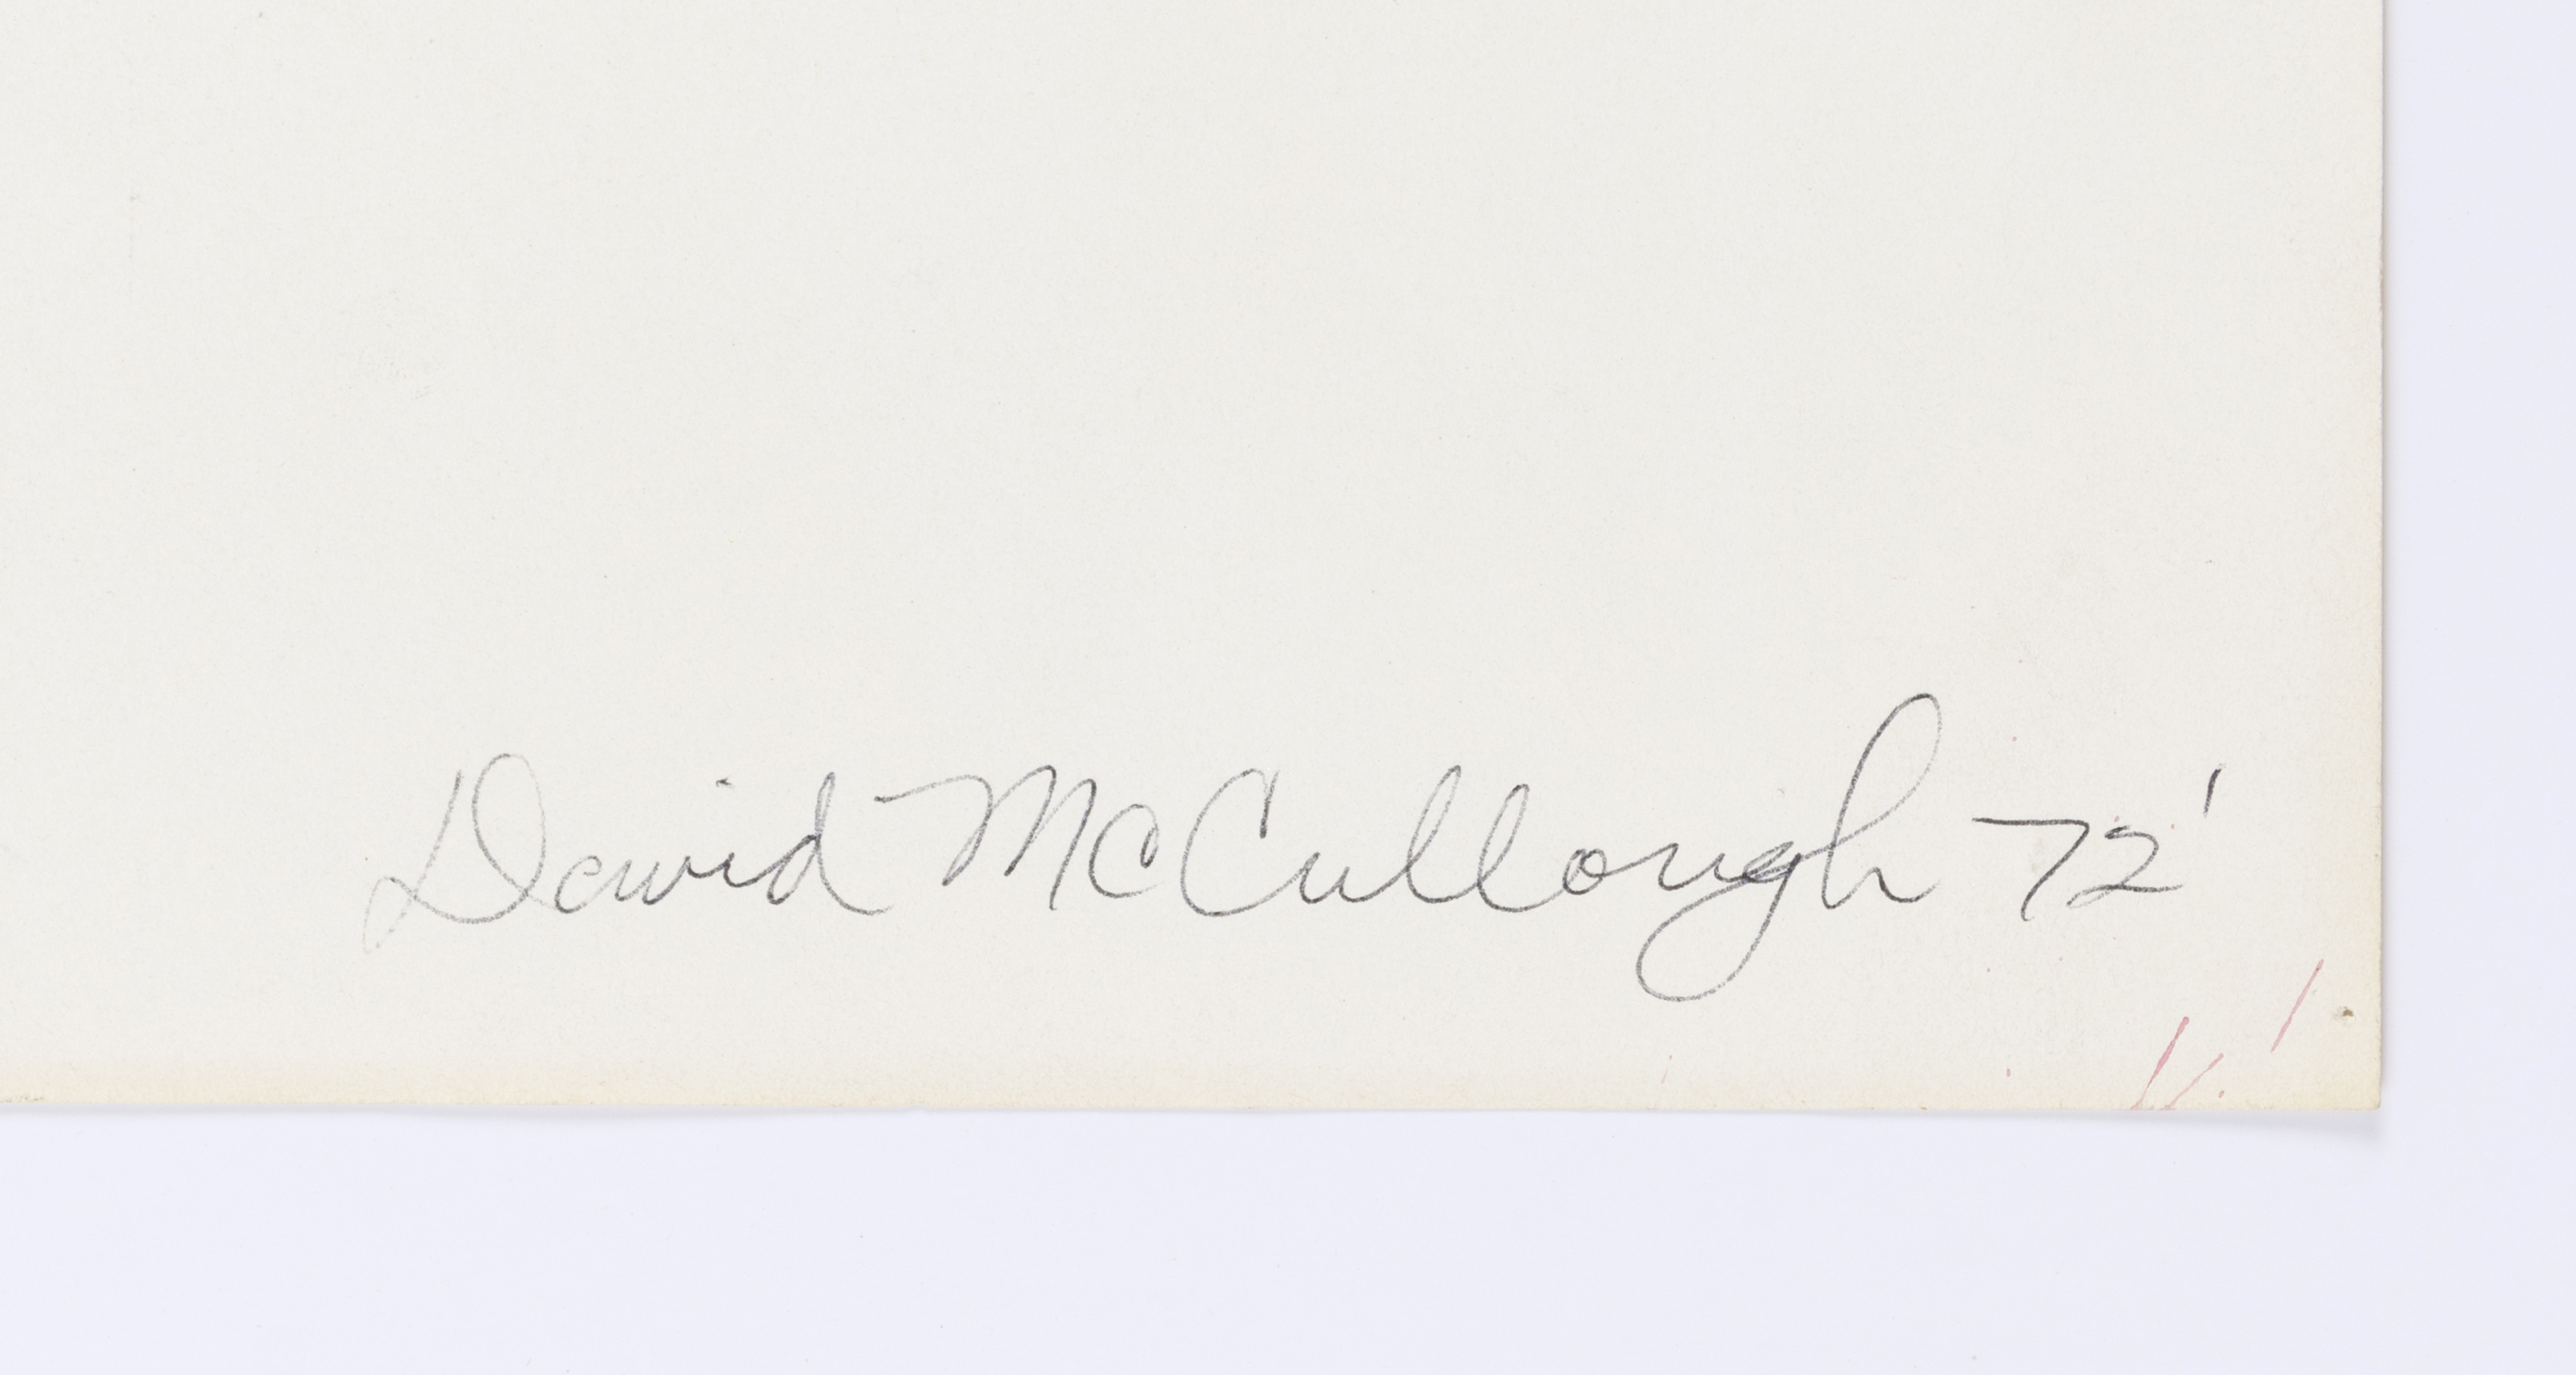 David McCullough 72'